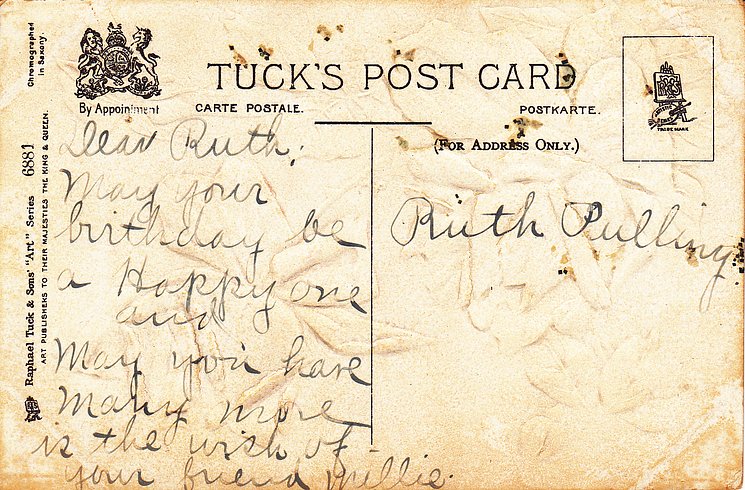 Chromographed
in Saxony.
Raphael Tuck & Sons' "Art" Series 6881
ART PUBLISHERS TO THEIR MAJESTIES THE KING & QUEEN.
By Appointment
TUCK'S POST CARD
CARTE POSTALE.
POSTKARTE.
(For Address Only.)
TRADE MARK
Dear Ruth;
May your
birthday be
a Happy one
and
May you have
Many more
is the wish of
your friend Millie.
Ruth Pulling